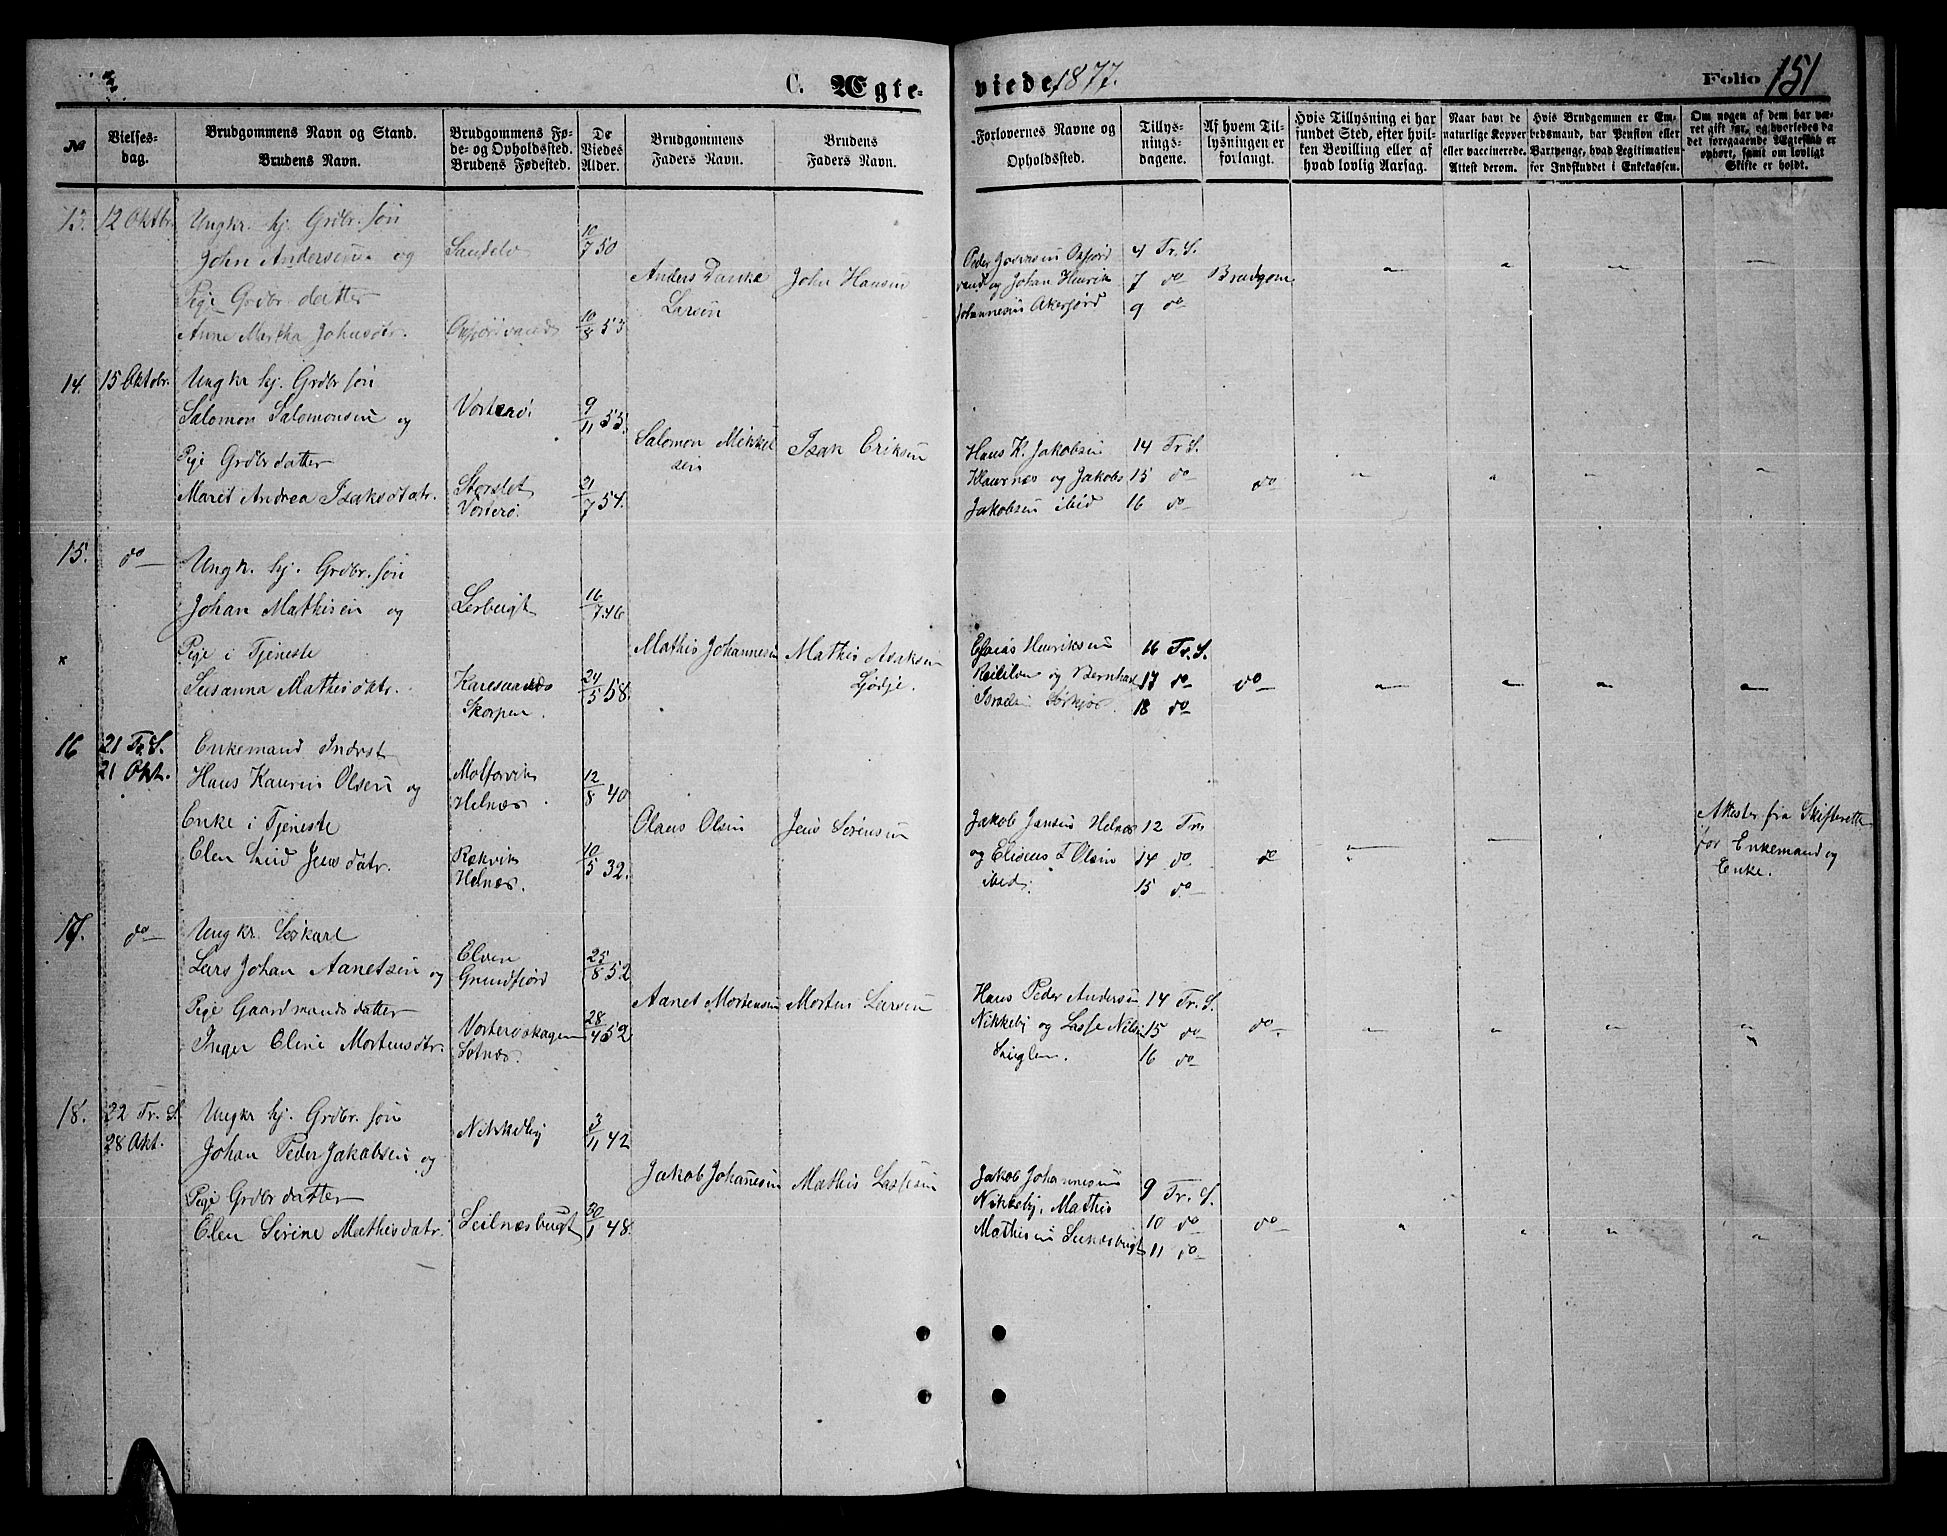 C. Ægte-
viede 1877.
Folio 151
No
Vielses-
dag.
Brudgommens Navn og Stand.
Brudens Navn.
Brudgommens Fø-
de- og Opholdssted.
Brudens Fødested.
De
Viedes
Alder.
Brudgommens
Faders Navn.
Brudens
Faders Navn.
Forlovernes Navne og
Opholdssted.
Tillys-
nings-
dagene.
Af hvem Til-
lysningen er
forlangt.
Hvis Tillysning ei har
fundet Sted, efter hvil-
ken Bevilling eller af
hvad lovlig Aarsag.
Naar havt de
naturlige Kopper
eller vaccinerede.
Attest derom.
Hvis Brudgommen er Em-
bedsmand, har Pension eller
Vartpenge, hvad Legitimation
for Indskuddet i Enkekassen.
Om nogen af dem har væ-
ret gift før, og hvorledes da
det foregaaende Ægteskab er
ophørt, samt om lovligt
Skifte er holdt.
13. 12 Oktbr. Ungkr. hj. Grdbr. søn
John Andersen og
Pige Grdbr datter
Anne Martha Johnsdtr.
10/7 50
10/8 53
Anders
Larsen
John Hansen
og Johan Henrik
Johannesen
4 Tr. S.
7 do
9 do
Brudgom
14. 15 Oktobr. Ungkr hj. Grdbr søn
Salomon Salomonsen og
Pige Grdbr datter
Maret Andrea Isaksdatr.
Vorterø.
Storslet
Vorterø.
9/11 55.
21/7 54.
Salomon Mikkel
sen
Isak Eriksen
Hans K. Jakobsen
Klaurnæs og Jakob
Jakobsen ibid
14 Tr. S.
15 do
16 do
do
15. do Ungkr. hj. Grdbr. søn
Johan Mathisen og
Pige i Tjeneste
Susanna Mathisdatr.
Lerbugt
Karesuando
Skorpen.
16/7 46
24/5 58
Mathis Johannesen
Mathis
Esaias Henriksen
og Bernhard
16 Tr. S.
17 do
18 do
do
16 21 Tr. S.
21 Okt.
Enkemand Inderst
Hans Kaurin Olsen og
Enke i Tjeneste
Elen Jensdatr.
Helnæs.
Rekvik
Helnæs.
12/8 40
10/5 32.
Olaus Olsen
Jens Sørensen
Jakob Jensen Helnæs
og Eliseus Olsen
ibid.
12 Tr.
14 do.
15 do
do
Attester fra Skifterette
for Enkemand og
Enke.
17. do Ungkr. Søkarl
Lars Johan Aanetsen og
Pige Gaardmandsdatter
Inger Eline Mortensdtr.
Elven
Grundfjord
Vorterøskagen
25/8 52
28/4 52
Aanet Mortensen
Morten Larsen
Hans Peder Andersen
Nikkeby og Lasse Nilsen
14 Tr. S.
15 do
16 do
do
18. 22 Tr. S.
28 Okt.
Ungkr hj. Grdbr. søn
Johan Peder Jakobsen og
Pige Grdbr datter
Elen Serine Mathisdatr.
Nikkeby
3/11 42
30/1 48.
Jakob Johanesen
Mathis Lassesen
Jakob Johannesen
Nikkeby, Mathis
Mathisen
9 Tr. S.
10 do
11 do
do